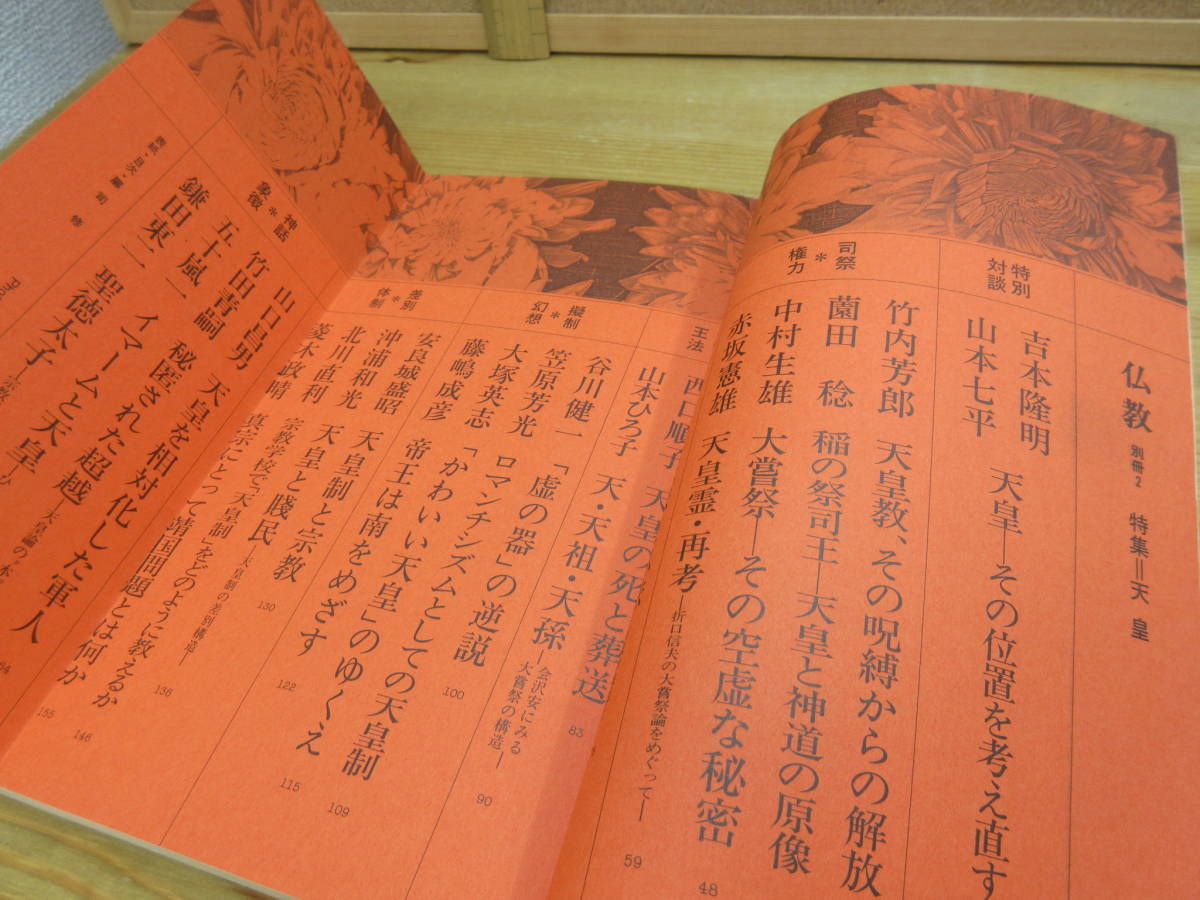 仏教 別冊2 特集=天皇
特別対談
吉本隆明
山本七平 天皇―その位置を考え直す
司祭*権力
竹内芳郎 天皇教、その呪縛からの解放
薗田 稔 稲の祭司王―天皇と神道の原像
中村生雄 大嘗祭―その空虚な秘密 48
赤坂憲雄 天皇霊・再考―折口信夫の大嘗祭論をめぐって― 59
王法
西口順子 天皇の死と葬送
山本ひろ子 天・天祖・天孫―会沢安にみる大嘗祭の構造― 83
擬制*幻想
谷川健一 「虚の器」の逆説 90
笠原芳光 ロマンチシズムとしての天皇制
大塚英志 「かわいい天皇」のゆくえ 100
藤嶋成彦 帝王は南をめざす 109
差別*体制
安良城盛昭 天皇制と宗教 115
沖浦和光 天皇と賤民―天皇制の差別構造― 122
北川直利 宗教学校で「天皇制」をどのように教えるか 130
菱木政晴 真宗にとって靖国問題とは何か 136
神話*象徴
山口昌男 天皇を相対化した軍人 146
竹田青嗣 秘匿された超越―天皇論の
五十嵐一 イマームと天皇 155
鎌田東二 聖徳太子
表紙・目次・扉